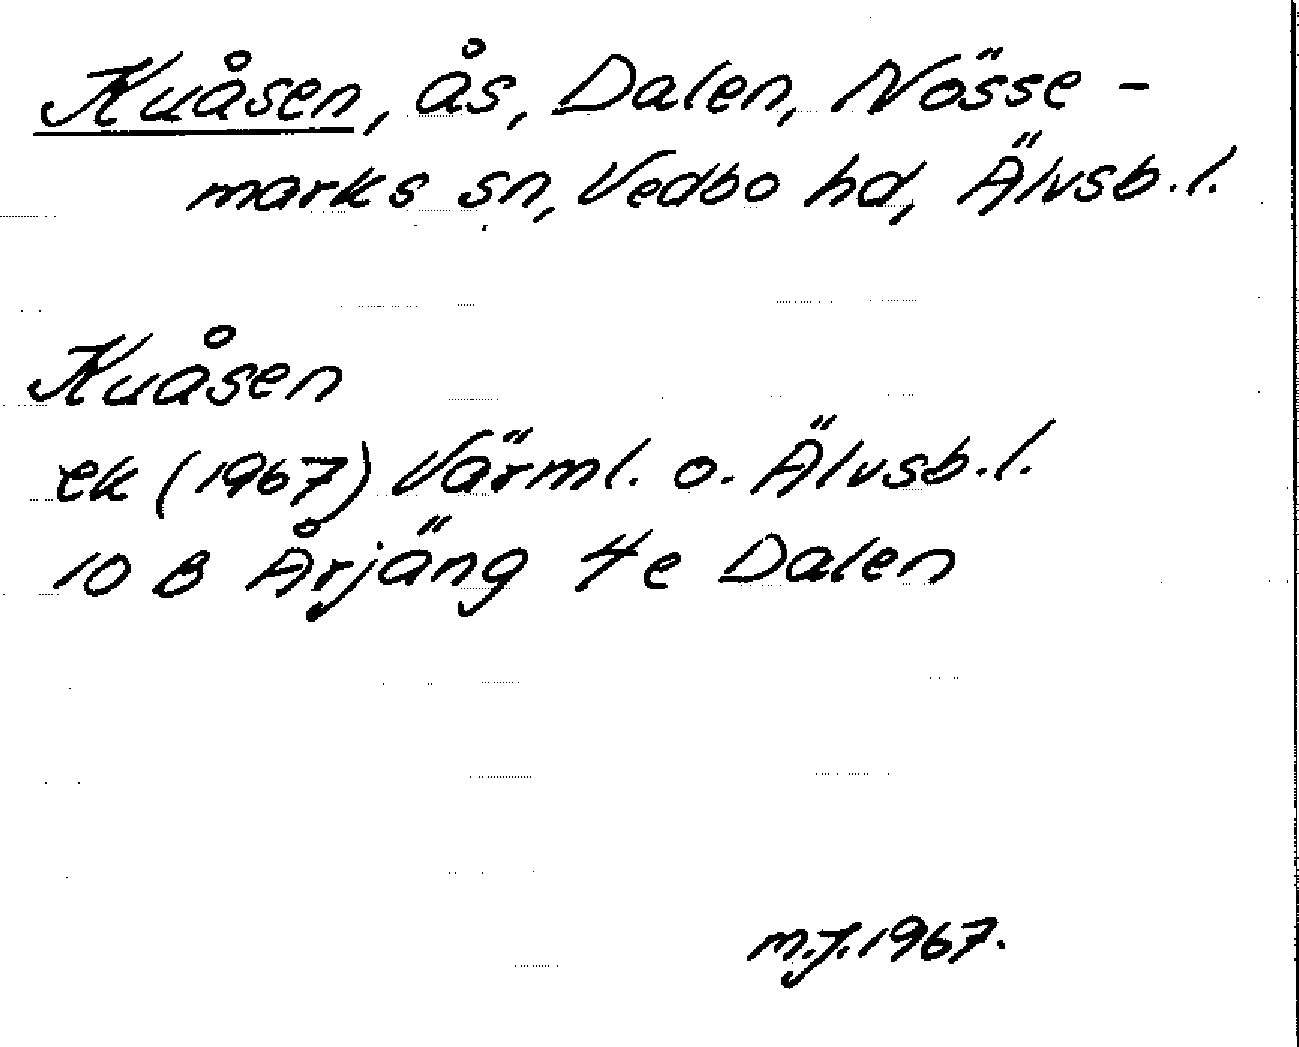 Kuåsen, ås, Dalen, Nösse-
marks sn, Vedbo hd, Älvsb.l.
Kuåsen
ek (1967) Värml. o. Älvsb.l.
10 B Årjäng 4e Dalen
m.j.1967.